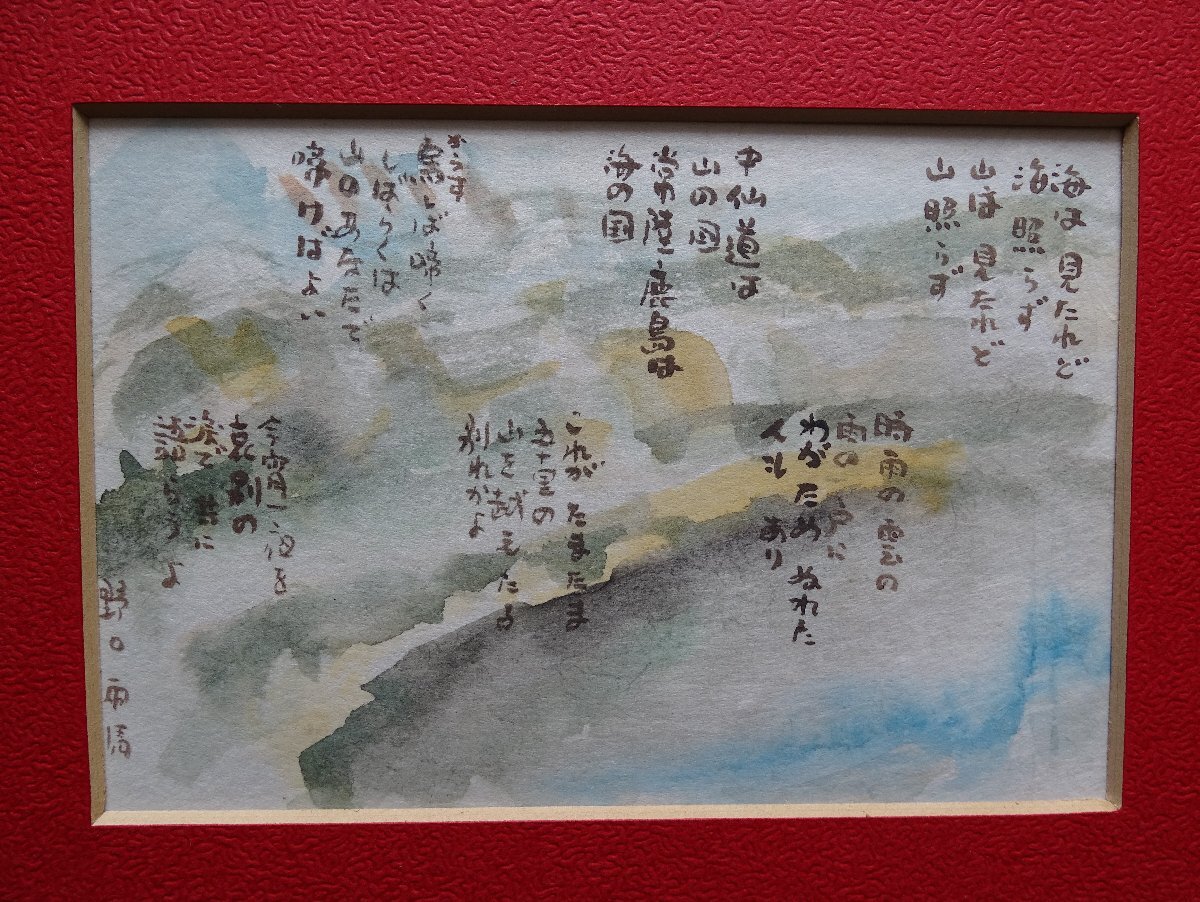 海は 見たれど
海 照らず
山は 見たれど
山 照らず
中仙道は
山の国
常陸 鹿島は
海の国
からす
烏しば啼く
しばらくは
山のあなたで
啼けばよい
時雨の雲の
雨の 戸に
わがため ぬれた
人も あり
これが たまたま
五十里の
山を 越えたる
別れかよ
今宵一夜を
哀別の
涙で共に
語らうよ
野口雨情